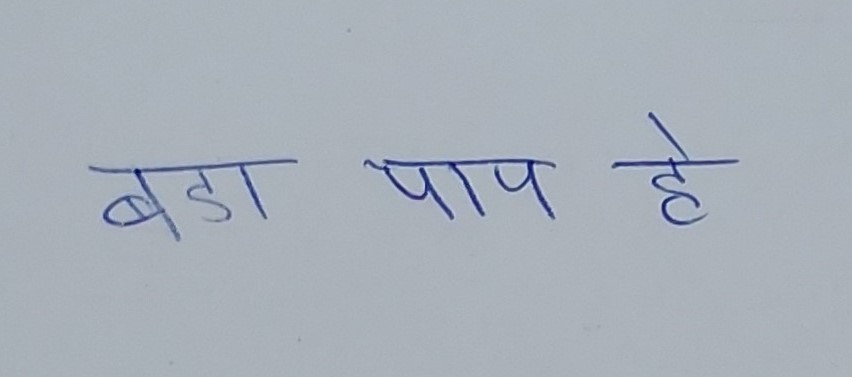 बडा पाप हे